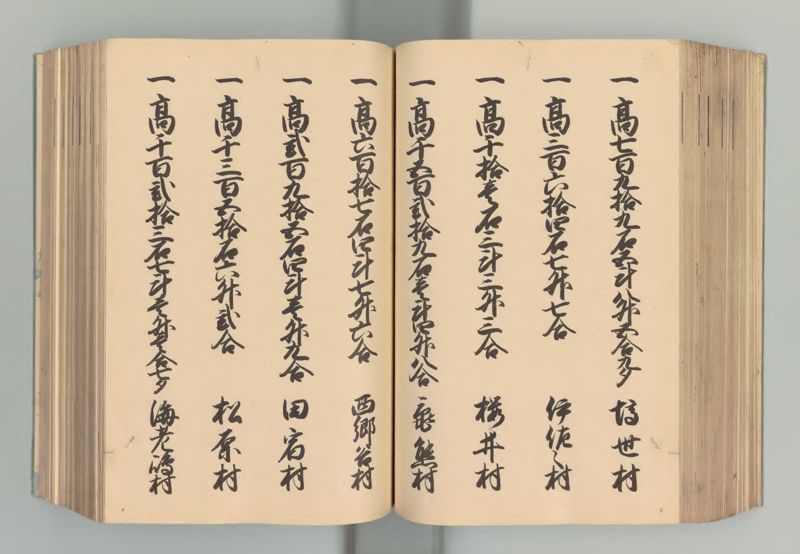 一高七百九拾九石五斗八升五合九夕 塙世村
一高三百六拾四石七升七合 伊佐々村
一高千拾壱石三斗三升三合 桜井村
一高千五百弐拾九石壱斗四升八合 熊村
一高六百拾七石四斗七升六合 西郷谷村
一高弐百九拾五石四斗壱升九合 田宿村
一高千三百五拾石六升弐合 松原村
一高千百弐拾三石七斗壱升壱合七夕 海老嶋村